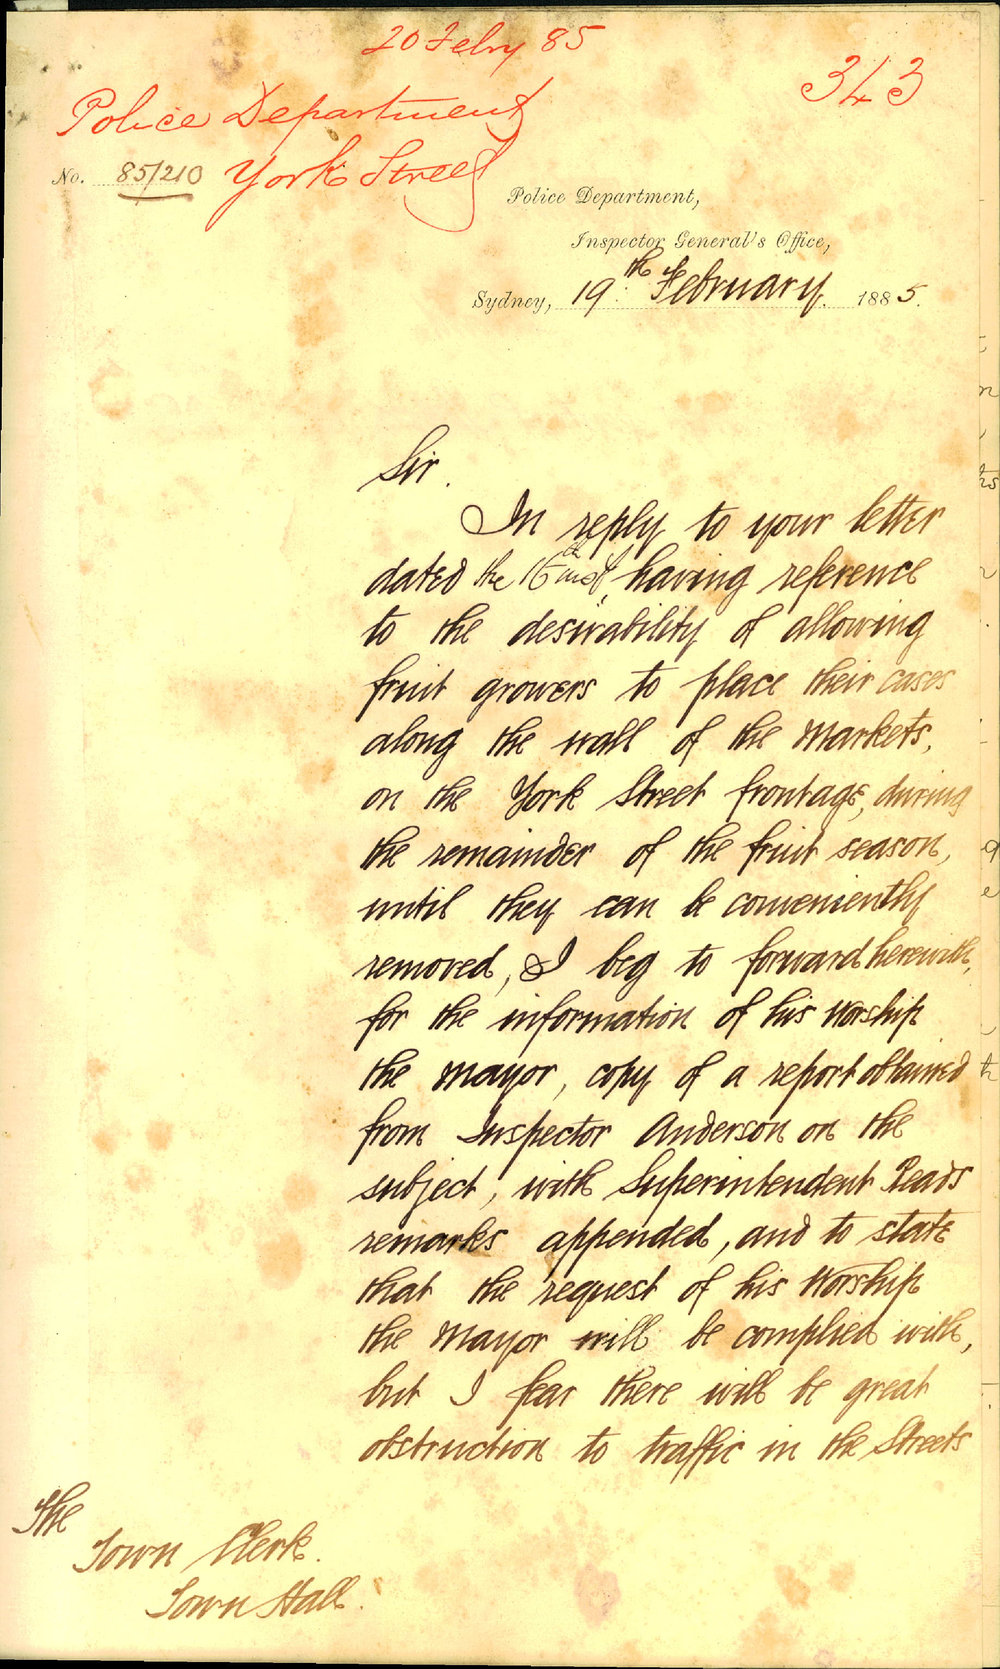 20 Febry 85
343
Police Department
No. 85/210 York Street
Police Department,
Inspector General's Office,
Sydney, 19th February 1885.
Sir.
In reply to your letter
dated the 16th inst, having reference
to the desirability of allowing
fruit growers to place their cases
along the wall of the Markets,
on the York Street frontage, during
the remainder of the fruit season,
until they can be conveniently
removed, I beg to forward herewith,
for the information of his Worship
the Mayor, copy of a report obtained
from Inspector Anderson on the
subject, with Superintendent Reads
remarks appended, and to state
that the request of his Worship
the Mayor will be complied with,
but I fear there will be great
obstruction to traffic in the Streets
The
Town Clerk.
Town Hall.